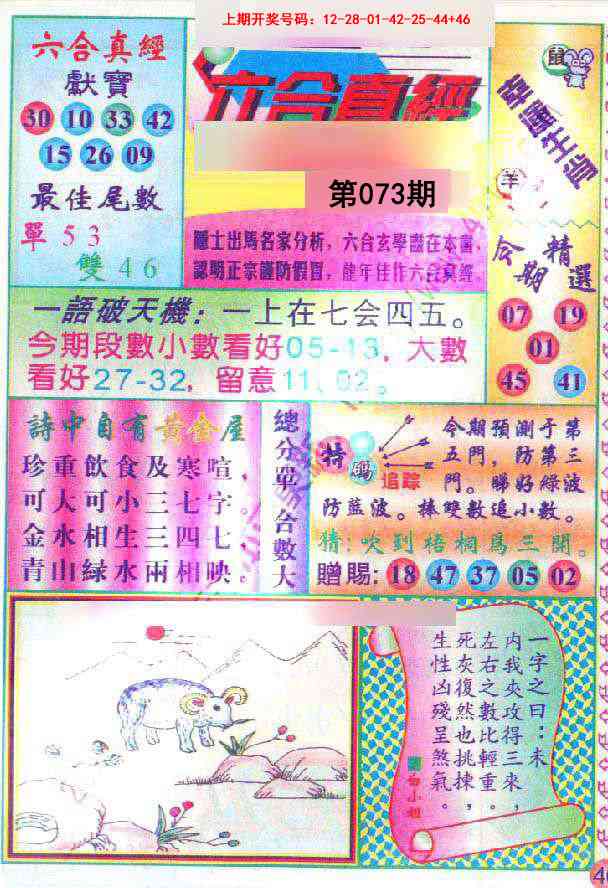 上期开奖号码：12-28-01-42-25-44+46
六合真經
獻寶
30 10 33 42
15 26 09
最佳尾數
單 5 3
雙 4 6
六合真經
第073期
隱士出馬名家分析，六合玄學盡在本書，
認明正宗謹防假冒，佳作六合真經
鼠
幸運生肖
羊
今期精選
07 19
01
45 41
一語破天機：一上在七会四五。
今期段數小數看好05-13，大數
看好27-32，留意11，02。
詩中自有黃金屋
珍重飲食及寒喧，
可大可小三七字。
金水相生三四七，
青山綠水兩相映。
總分單
合數大
特碼
追踪
今期預測于第
五門，防第三
門。睇好綠波
防藍波。捧雙數追小數。
猜：吹到梧桐馬三開。
贈賜：18 47 37 05 02
一字之曰：未
内我夾攻得三來，
左右之數比輕重。
死灰復然也挑揀，
生性凶殘呈煞氣。
白小姐